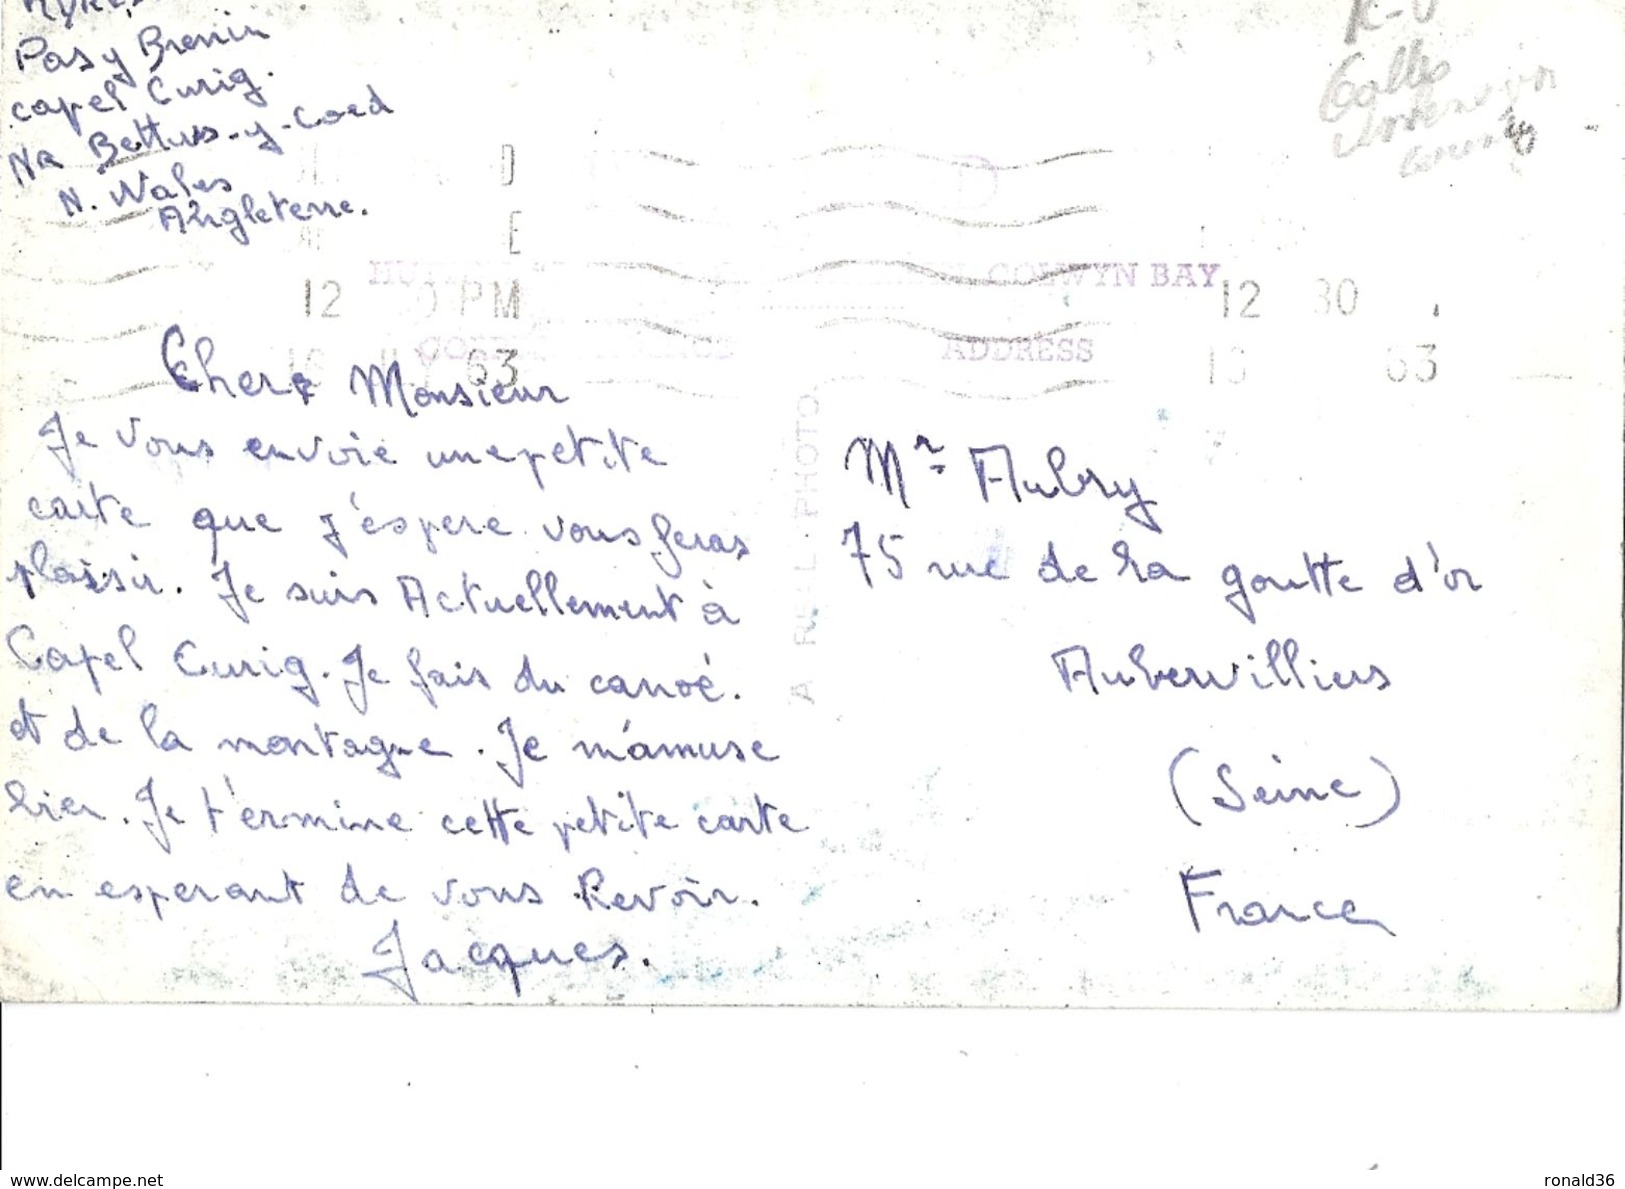 Pas y Brenin
Capel Curig.
Nr Bettws-y-Coed
N. Wales
Angleterre.
COLWYN BAY
ADDRESS
12 PM
63
12 30
63
A REAL PHOTO
Cher Monsieur
Je vous envoie une petite
carte que j'éspere vous feras
plaisir. Je suis Actuellement à
Capel Curig. Je fais du canoé.
et de la montagne. Je m'amuse
bien. Je t'ermine cette petite carte
en esperant de vous Revoir.
Jacques.
Mr Aubry
75 rue de la goutte d'or
Aubervilliers
(Seine)
France
Galles
www.delcampe.net
ronald36